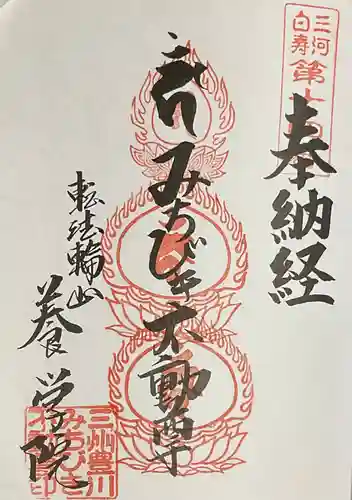 三河
白寿
第十
奉納経
みちびき不動尊
転法輪山
養学院
三州豊川
みちびき
不動印